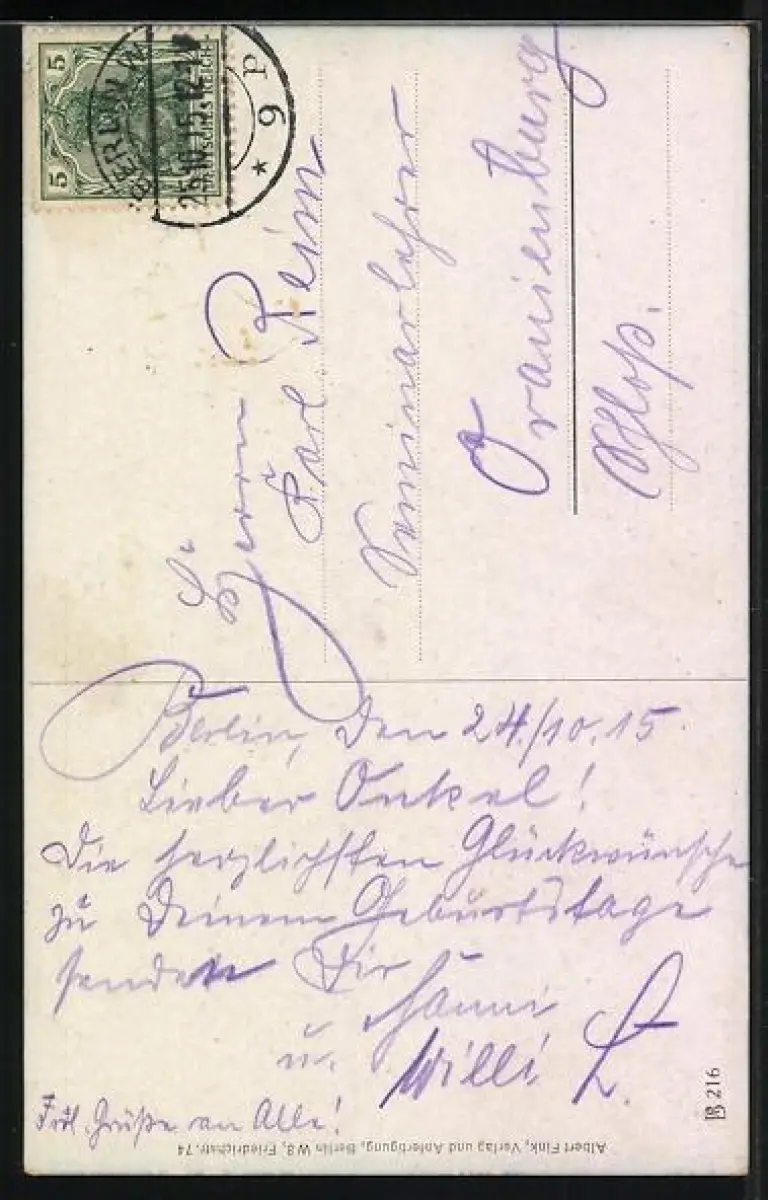 5 5
DEUTSCHES REICH
BERLIN
25.10.15.12
* 9 P
Herrn
Karl Reim
Seminarlehrer
Oranienburg
Schloß.
Berlin, den 24./10.15.
Lieber Onkel!
Die herzlichsten Glückwünsche
zu Deinem Geburtstage
senden Dir
Hanni
u. Willi L.
Frdl. Grüße an Alle!
Albert Fink, Verlag und Anfertigung, Berlin W8, Friedrichstr. 74
216